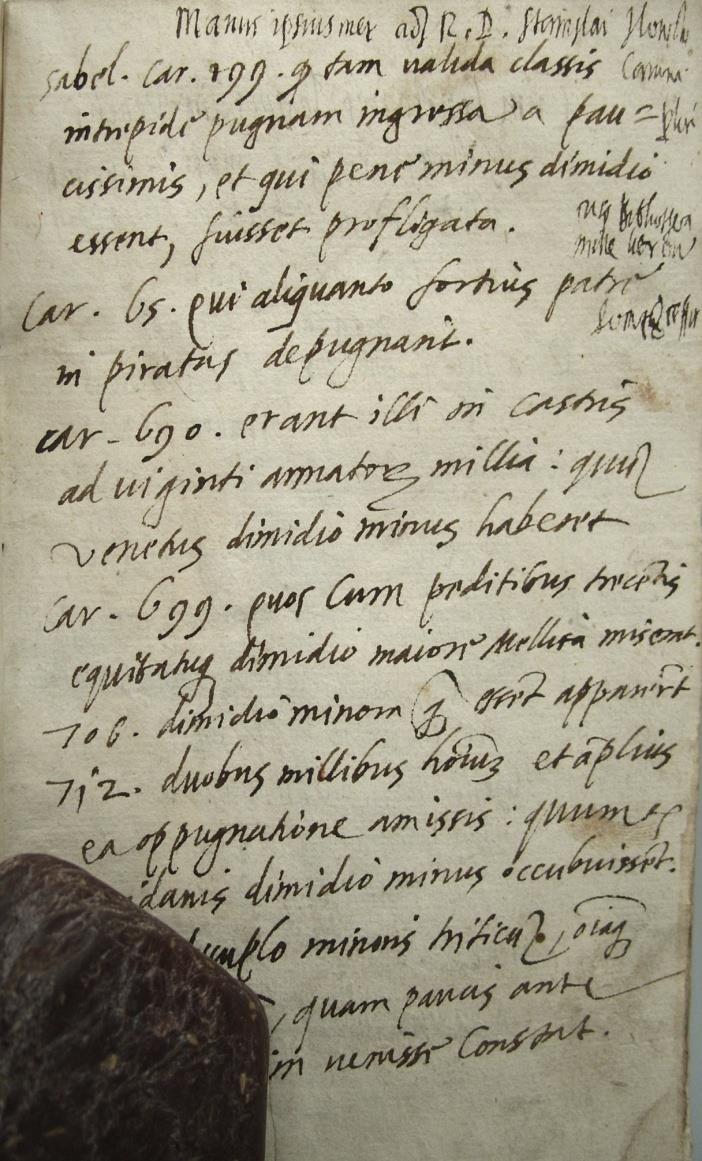 Manus ipsiusmet ad R. D. Stanislai
Sabel. Car. 199. ꝙ tam valida classis
intrepide pugnam ingressa a pau=
cissimis, et qui pene minus dimidio
essent, fuisset profligata.
Car. 65. qui aliquanto fortius patre
in piratas depugnarit.
car. 690. erant illi in castris
ad viginti armatorꝫ millia: quū
Venetus dimidio minus haberet
Car. 699. quos cum peditibus trecētis
equitatuqꝫ dimidio maiore miserat.
706. dimidio minorem ꝗ̃ essēt apparērēt
712. duobus millibus hōium et āplius
ea oppugnatione amissis: quum ex
idanis dimidio minus occubuisset.
minoris triticum, oīaqꝫ
, quam paucis ante
venisse constat.
mille